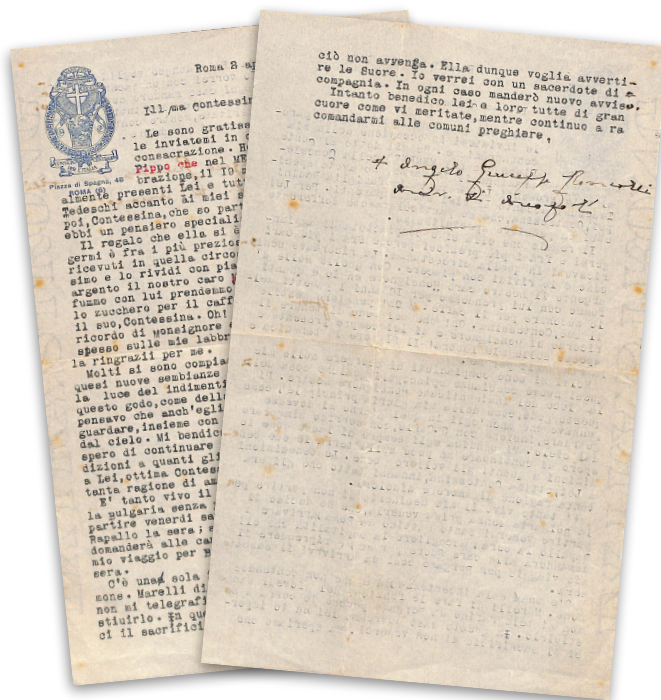 Roma 2 ap
Ill/ma Contessin
Le sono gratiss
le inviatemi in o
consacrazione. Ho
Pippo che nel ME
brazione, il 19 m
Piazza di Spagna, 48
ROMA
almente presenti Lei e tut
Tedeschi accanto ai miei s
poi, Contessina, che so par
ebbi un pensiero speciali
Il regalo che ella si è
germi è fra i più prezio
ricevuti in quella circo
simo e lo rividi con pia
argento il nostro caro
fummo con lui prendemmo
lo zucchero per il caff
il suo, Contessina. Oh!
ricordo di Monsignore
spesso sulle mie labbr
la ringrazii per me.
Molti si sono compia
quesi nuove sembianze
la luce del indimenti
questo godo, come dell
pensavo che anch'egli
guardare, insieme con
dal cielo. Mi bendic
spero di continuare
dizioni a quanti gli
a Lei, ottima Contess
tanta ragione di am
E' tanto vivo il
la bulgaria senza
partire venerdi sa
Rapallo la sera; s
domanderà alle ca
mio viaggio per B
sera.
C'è una sola
mone. Marelli di
non mi telegrafi
stiuirlo. In que
ci il sacrifici
ciò non avvenga. Ella dunque voglia avverti-
re le Suore. Io verrei con un sacerdote di
compagnia. In ogni caso manderò nuovo avviso.
Intanto benedico lei e loro tutte di gran
cuore come vi meritate, mentre continuo a ra
comandarmi alle comuni preghiere,
+ Angelo Giuseppe Roncalli